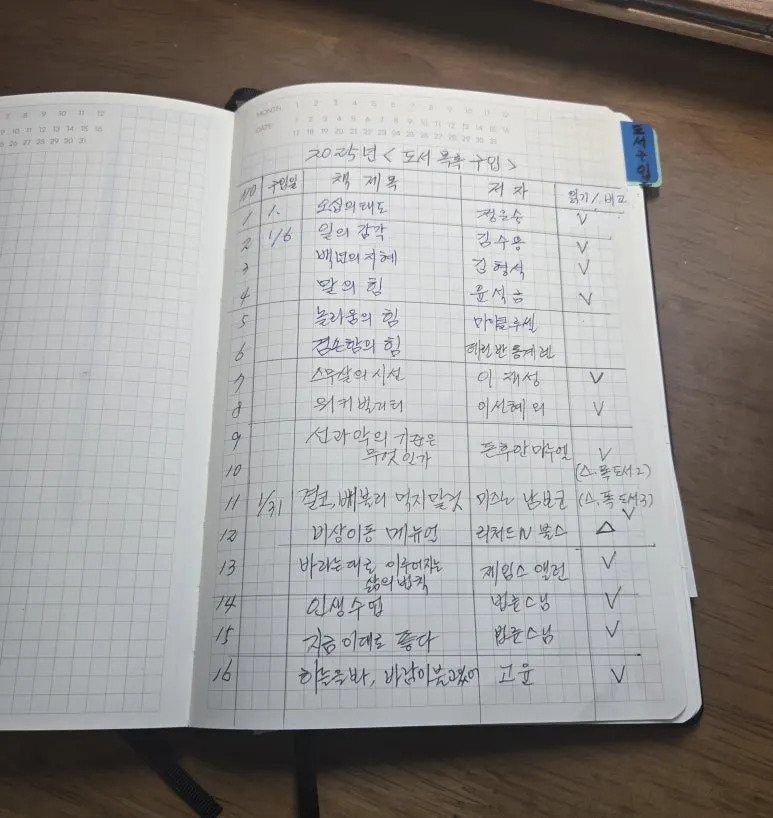 MONTH. 1 2 3 4 5 6 7 8 9 10 11 12
DATE. 1 2 3 4 5 6 7 8 9 10 11 12 13 14 15 16
17 18 19 20 21 22 23 24 25 26 27 28 29 30 31
도서구입
2025년 < 도서 목록 구입 >
NO 구입일 책 제목 저 자 읽기/비고
1 1. 오십의 태도 정은숙 V
2 1/6 일의 감각 조수용 V
3 백년의 지혜 김형석 V
4 말의 힘 윤석금 V
5 놀라움의 힘 마이클루셀
6 겸손함의 힘
7 스무살의 시선 이재성 V
8 워커빌리티 이선혜 외 V
9 선과 악의 기준은
무엇인가 돈후안마누엘 V
10 (스.폭 도서2)
11 1/31 결코, 배불리 먹지 말것 미즈노 남보쿠 (스.폭 도서3)
V
12 비상이동 메뉴얼 리처드 N 볼스 △
13 바라는대로 이루어지는
삶의 법칙 제임스 앨런 V
14 인생수업 법륜스님 V
15 지금 이대로 좋다 법륜스님 V
16 하늘을봐, 바람이불고있어 고윤 V